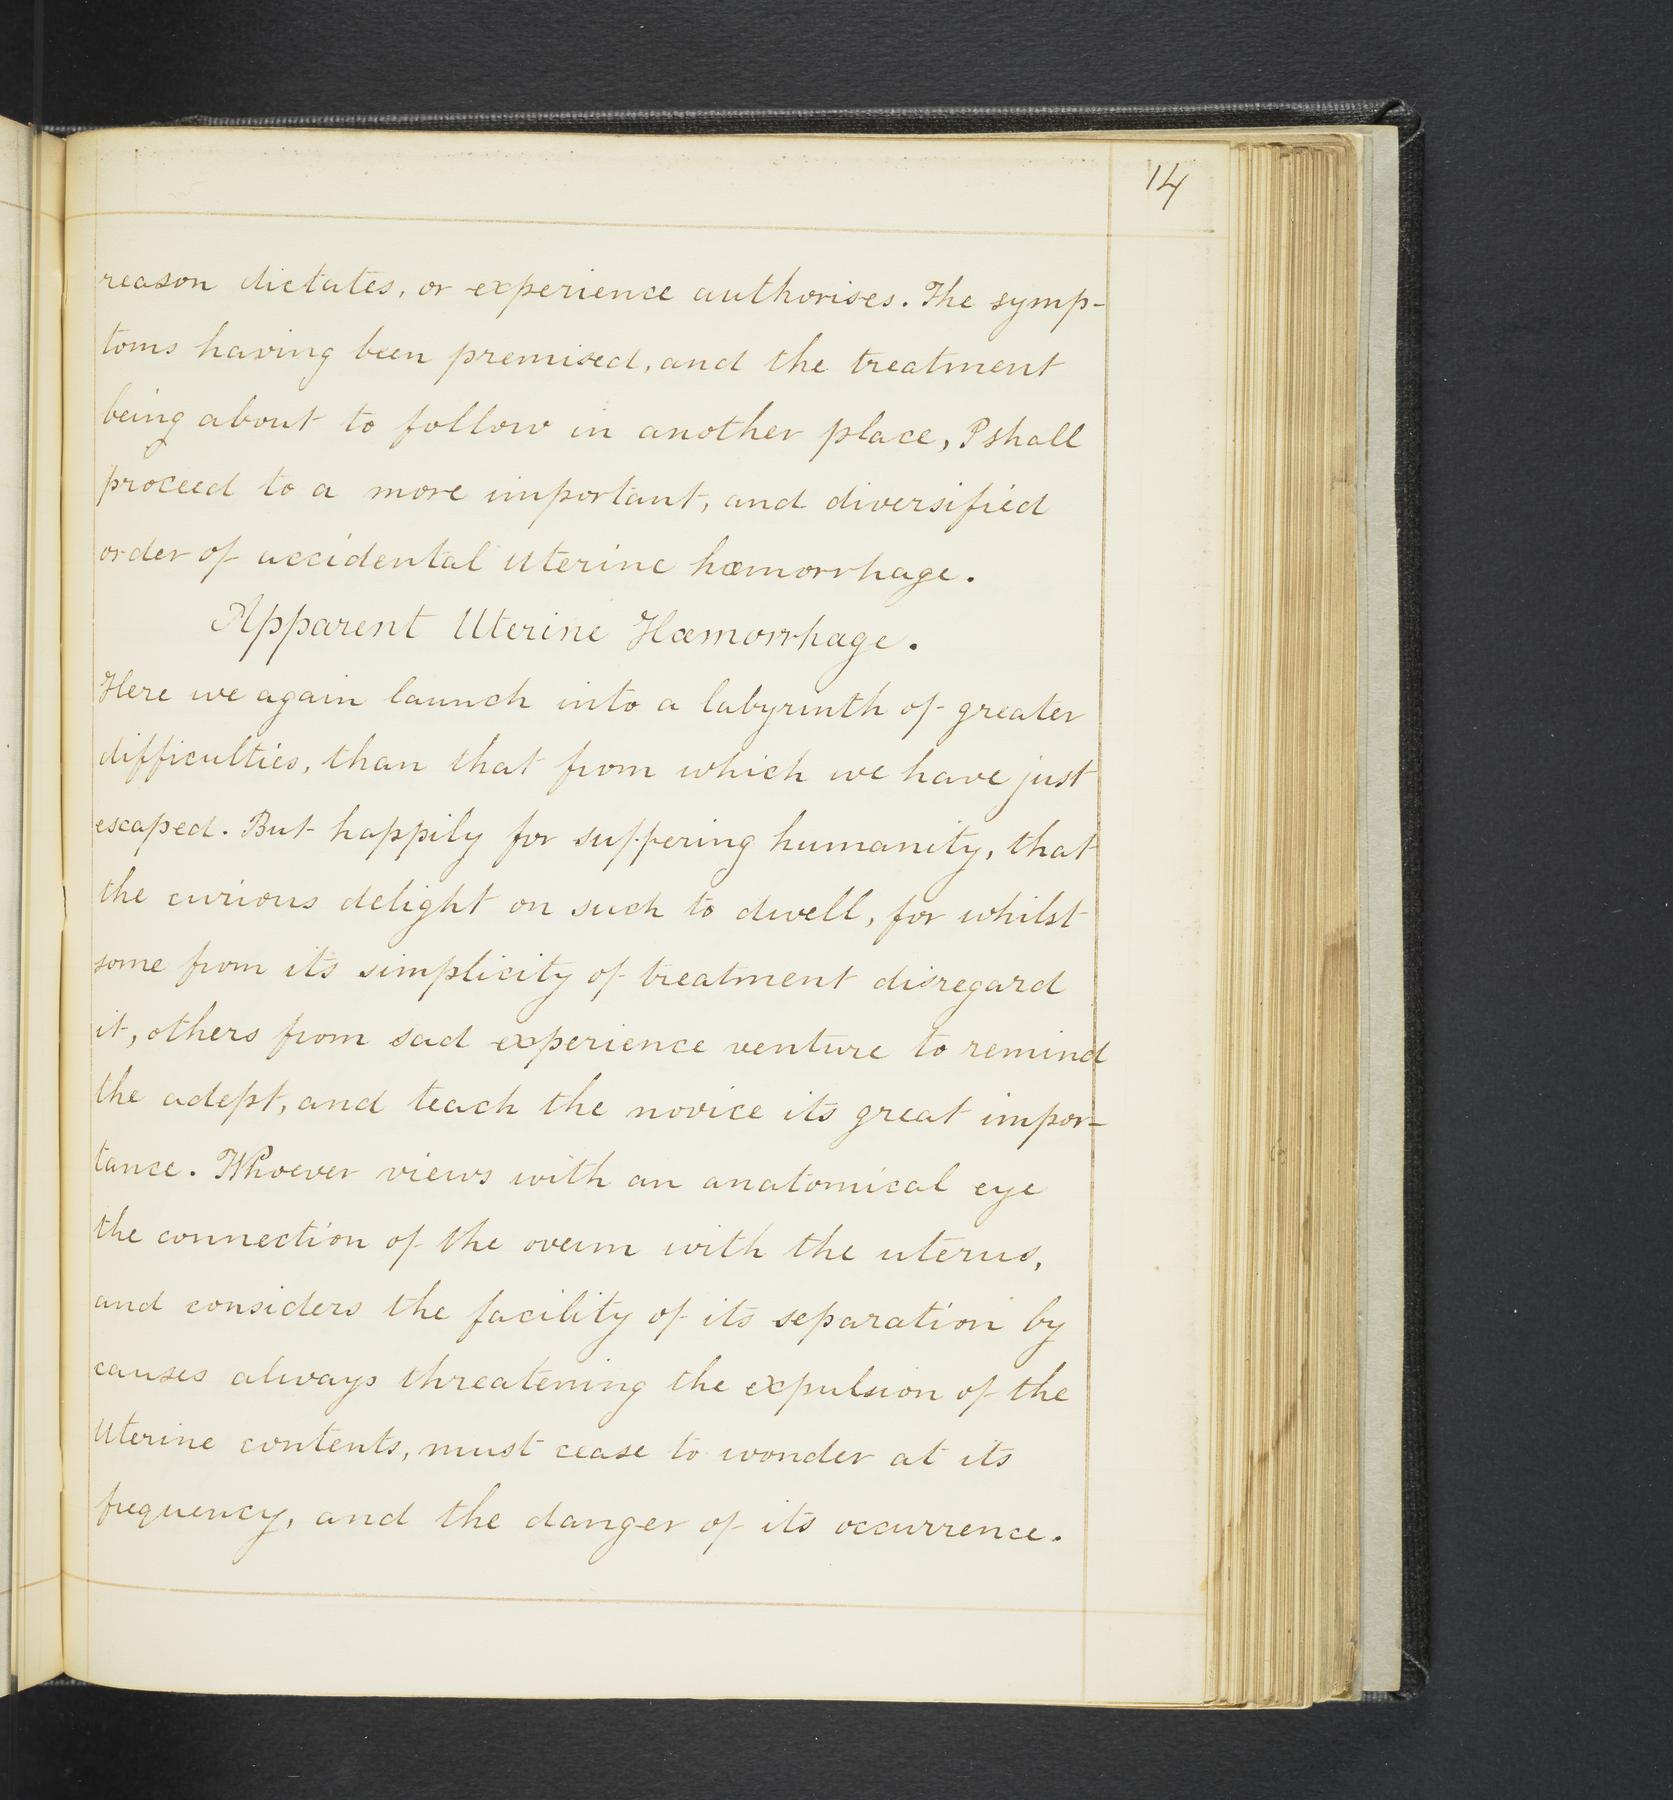 14
reason dictates, or experience authorises. The symp-
toms having been premised, and the treatment
being about to follow in another place, I shall
proceed to a more important, and diversified
order of accidental Uterine hæmorrhage.
Apparent Uterine Hæmorrhage.
Here we again launch into a labyrinth of greater
difficulties, than that from which we have just
escaped. But happily for suffering humanity, that
the curious delight on such to dwell, for whilst
some from its simplicity of treatment disregard
it, others from sad experience venture to remind
the adept, and teach the novice its great impor-
tance. Whoever views with an anatomical eye
the connection of the ovum with the uterus,
and considers the facility of its separation by
causes always threatening the expulsion of the
Uterine contents, must cease to wonder at its
frequency, and the danger of its occurrence.